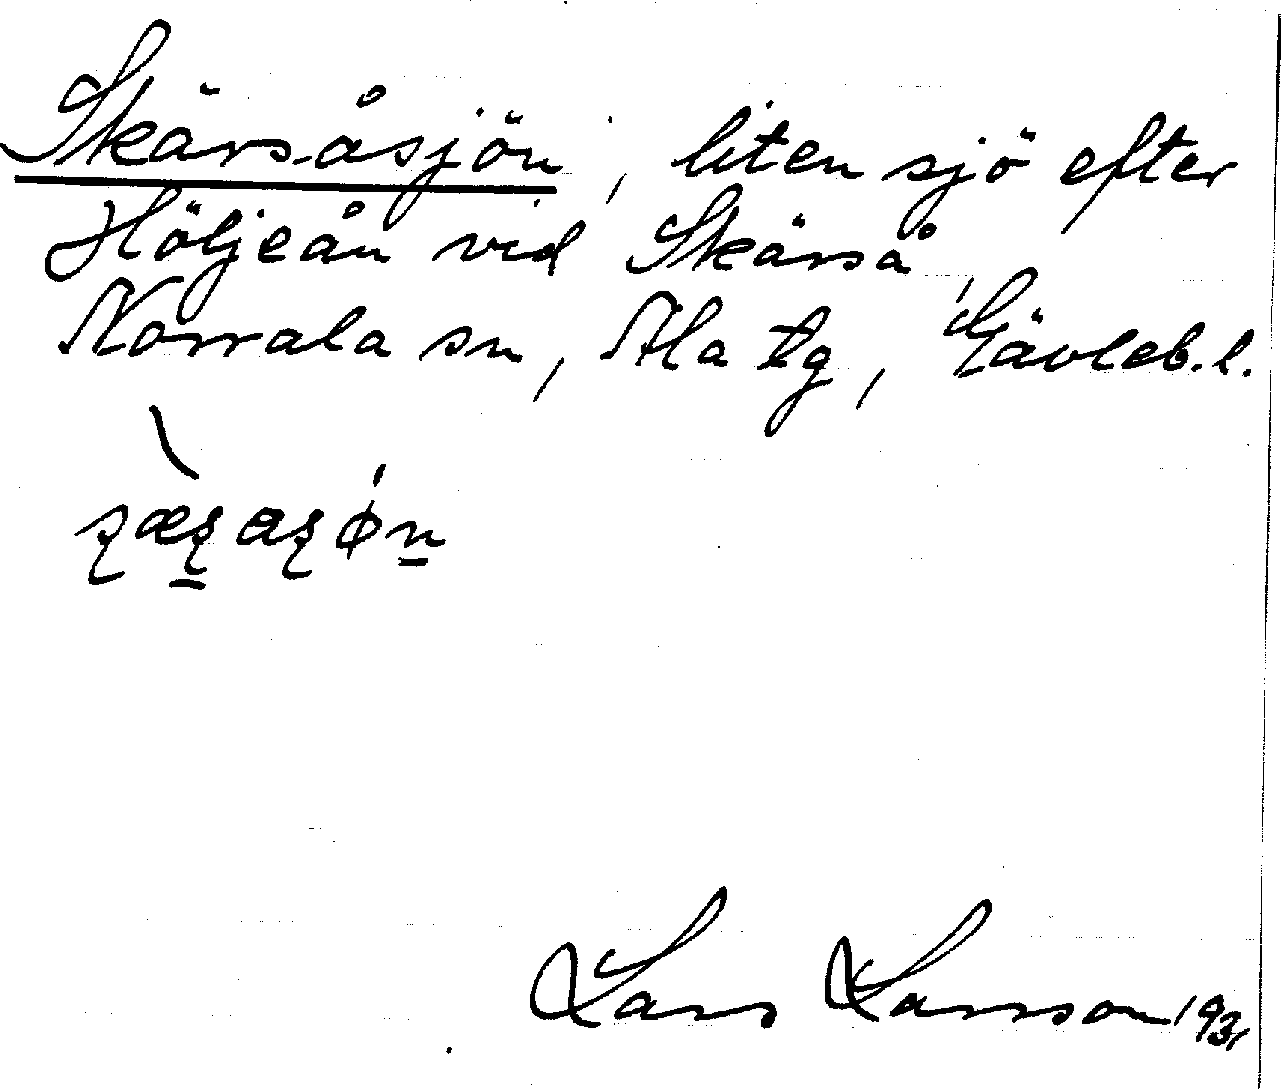 Skärsåsjön, liten sjö efter
Höljeån vid Skärså,
Norrala sn, Ala tg, Gävleb.l.
Lars Larsson 1931